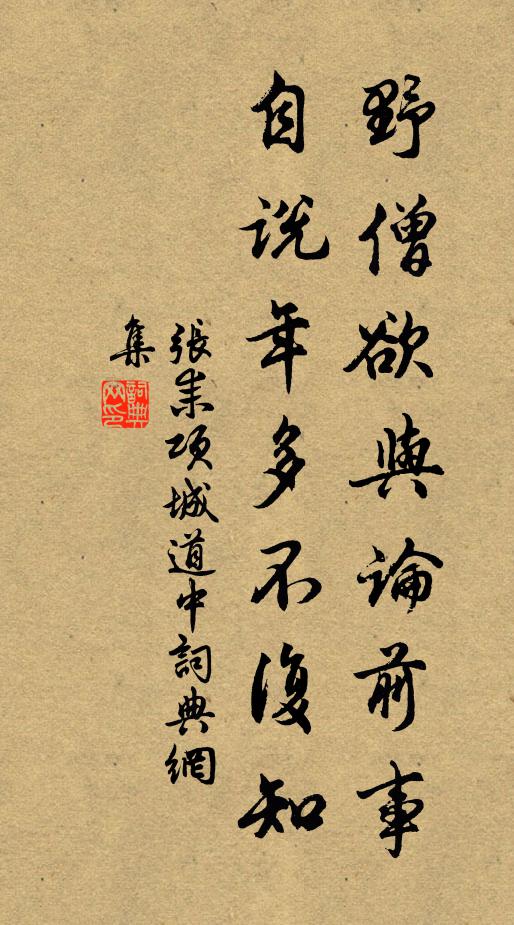 野僧欲與論前事
自說年多不復知
張耒項城道中詞典網
集
詞典網印